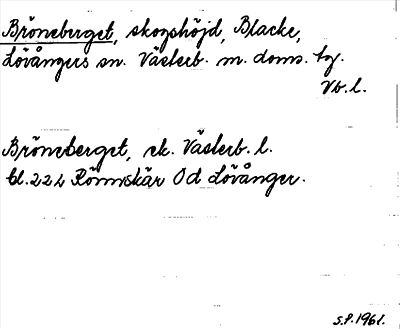 Bröneberget, skogshöjd, Blacke,
Lövångers sn. Västerb. m. doms. tg.
Vb. l.
Bröneberget, ek. Västerb. l.
bl. 22 L Rönnskär Od Lövånger.
S.P. 1961.